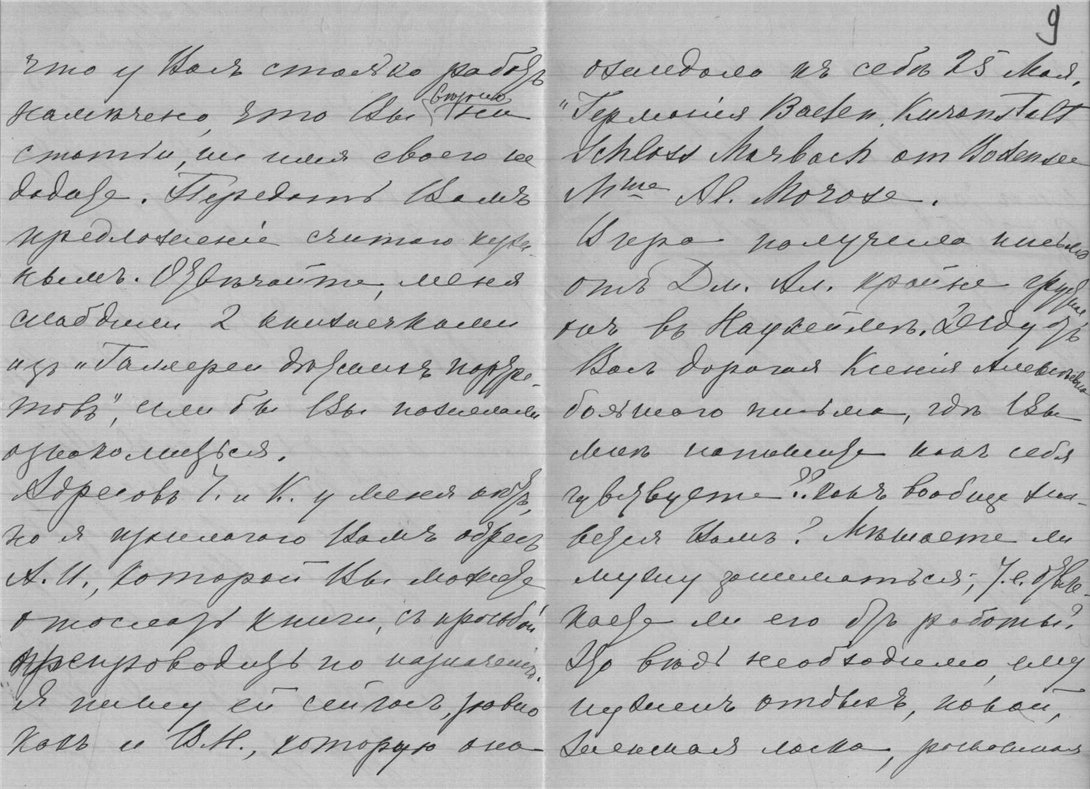 9
что у Васъ столько работъ
намѣчено, что Вы ни
статьи, ни имя своего не
дадите. Передать Вамъ
предложеніе считаю нуж-
нымъ. Отвѣчайте, меня
снабдили 2 книжечками
изъ "Галлереи дѣтскихъ портре-
товъ", если бы Вы пожелали
ознакомиться.
Адресовъ Ч. и К. у меня нѣтъ,
но я прилагаю Вамъ адресъ
А. И., которой Вы можете
отослать книги, съ просьбой
препроводить по назначенію.
Я пишу ей сейчасъ, равно
какъ и В. Н., которую она
ожидала къ себѣ 25 Мая,
"Германія Baden. Kuranstalt
Schloss Marbach am Bodensee
Mme Al.
Вчера получила письмо
отъ Дм. Ал. крайне
въ Наугеймѣ. Жду отъ
Васъ дорогая Ксенія Алексѣевна
большого письма, гдѣ Вы
мнѣ напишете какъ себя
чувствуете?? Какъ вообще жи-
вется Вамъ? Мѣшаете ли
мужу заниматься, т. е. отвле-
каете ли его отъ работы?
Это вѣдь необходимо, ему
нуженъ отдыхъ, покой,
женская ласка, роскошная